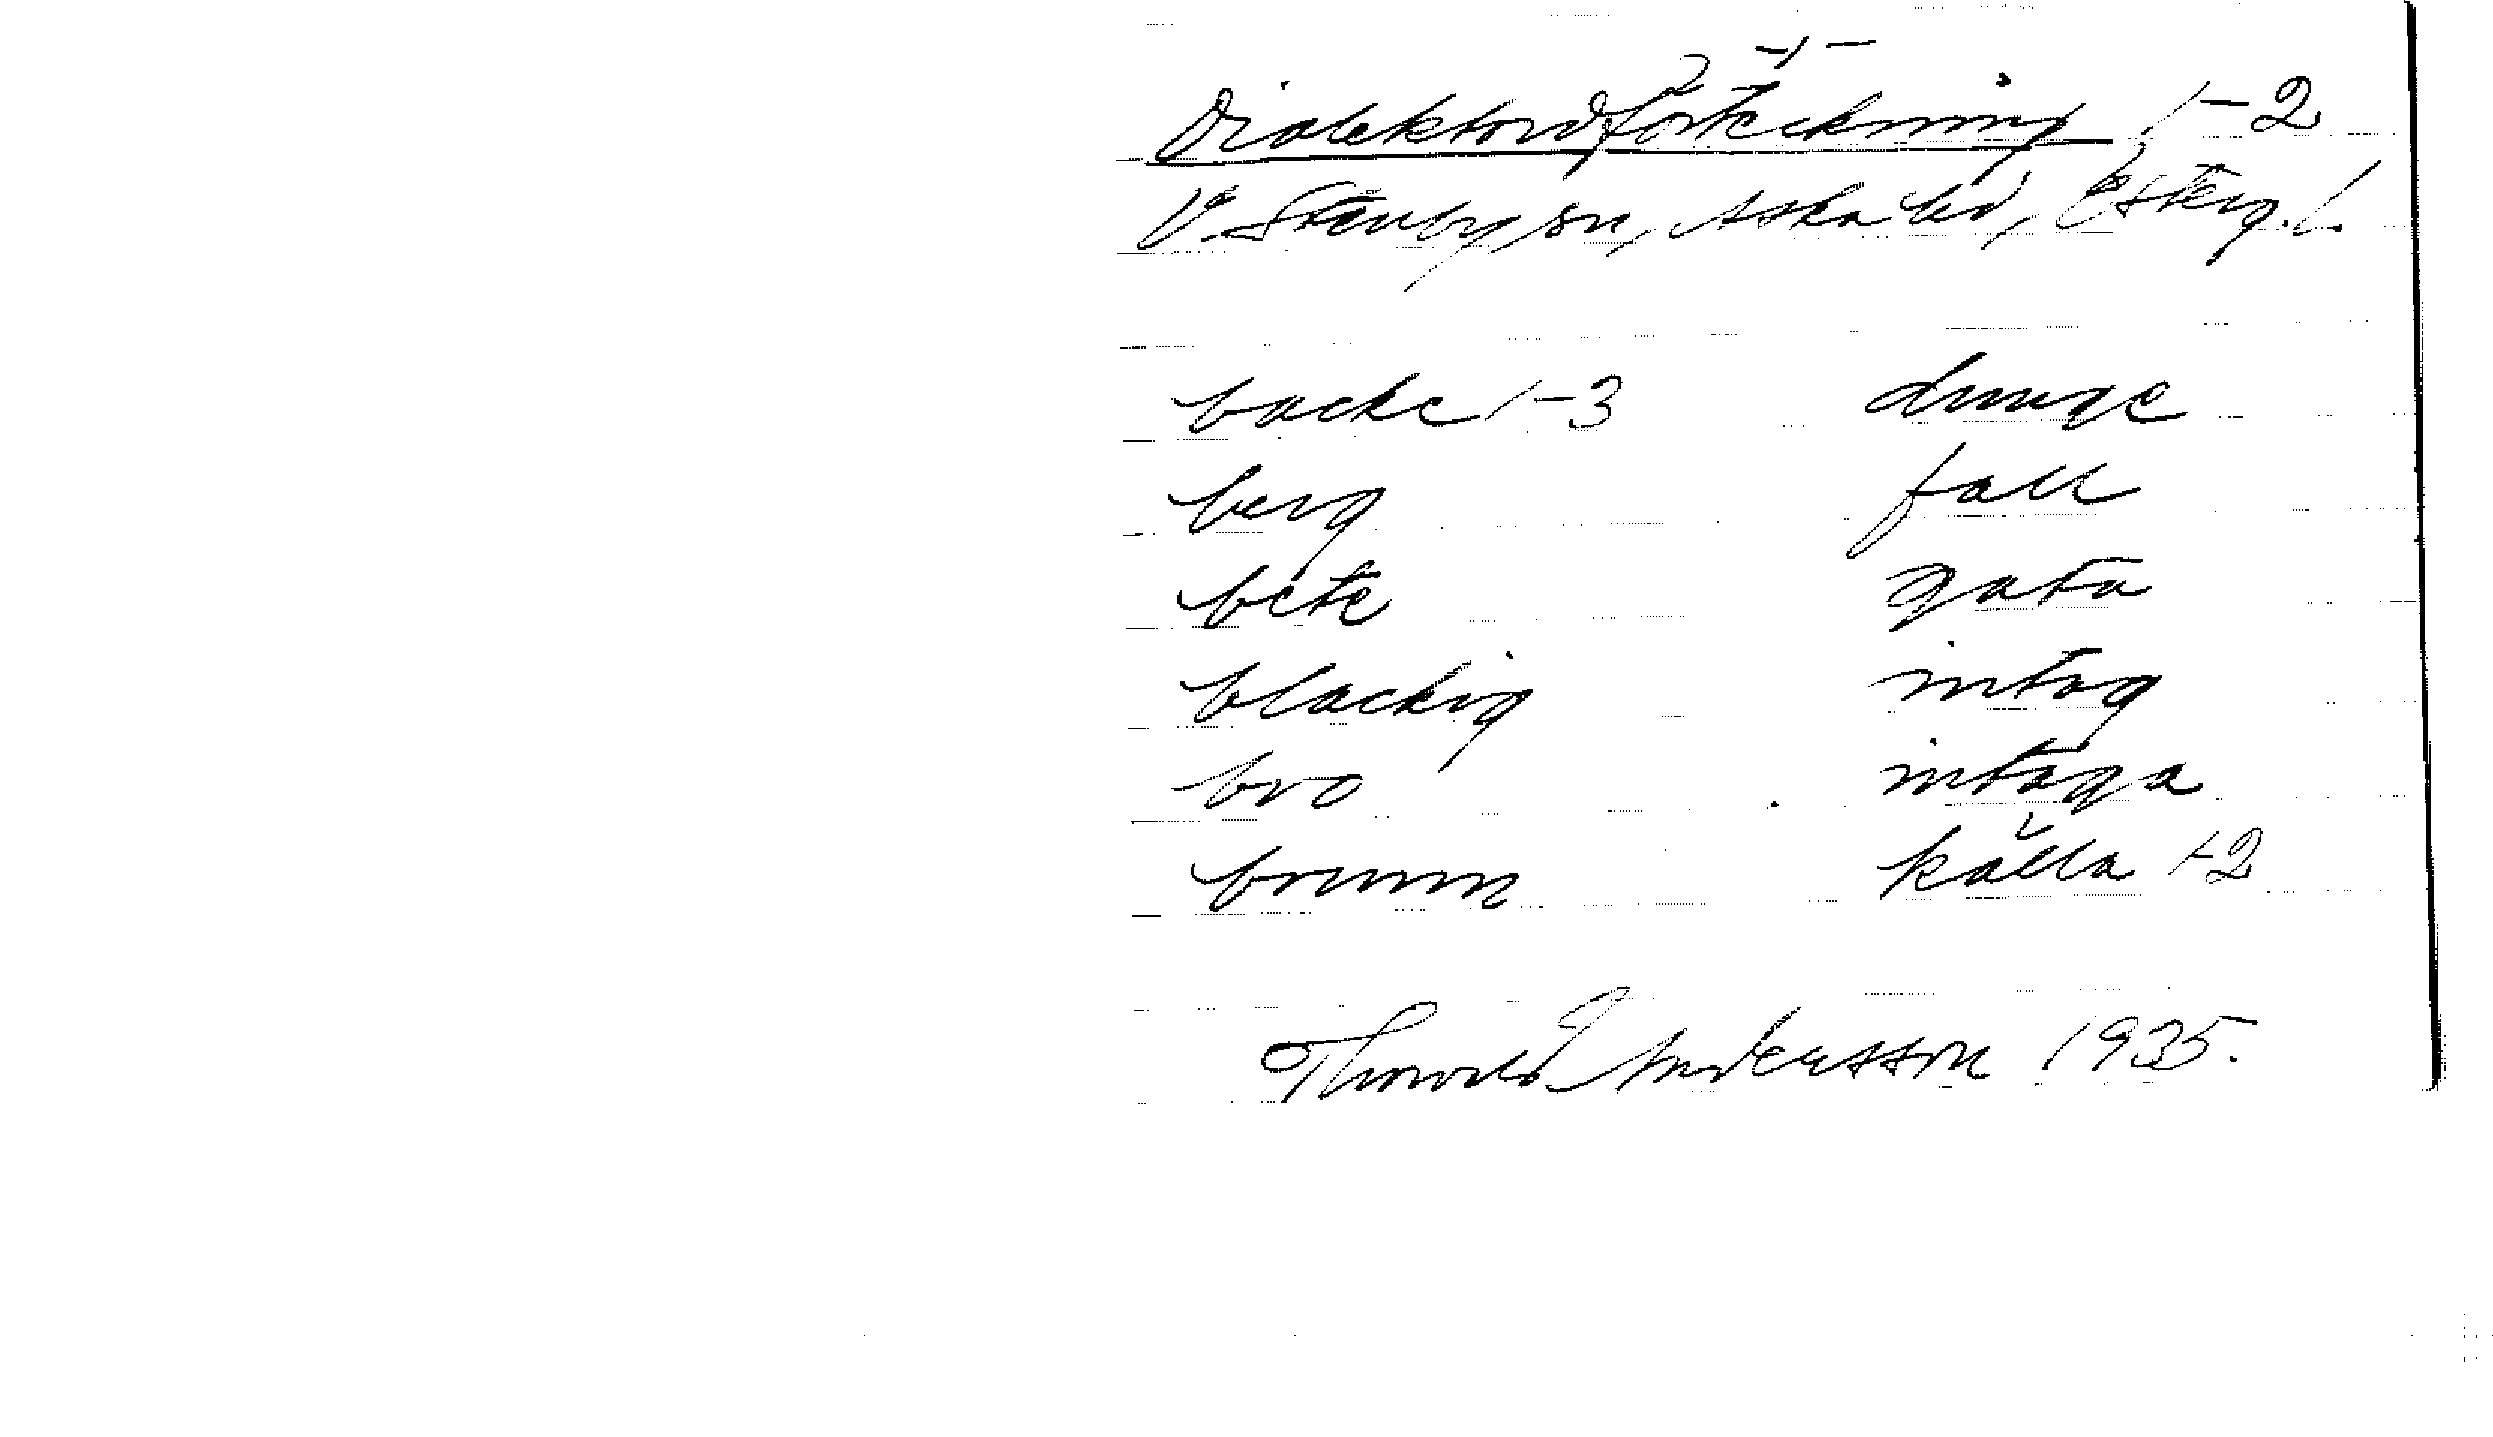 Dialektordförteckning 1-2
V. Stenby sn, Aska hd, Österg. l.
backe 1-3 dunge
berg fall
bete gata
blackig intag
bro intaga
brunn källa 1-2
Thorvald Andersson 1935.